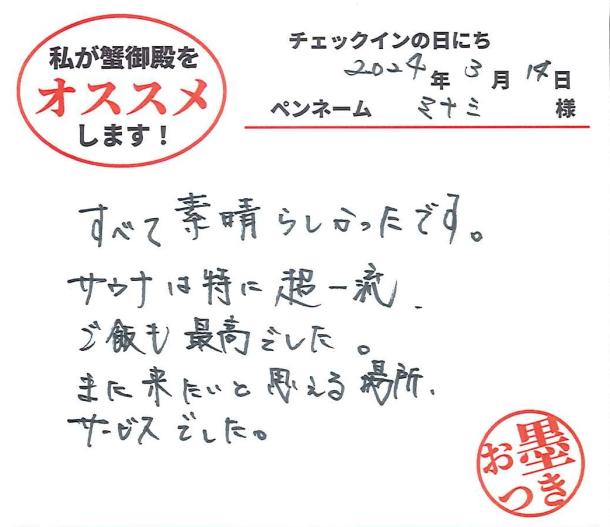 私が蟹御殿を
オススメ
します！
チェックインの日にち
2024年3月14日
ペンネーム ミナミ 様
すべて素晴らしかったです。
サウナは特に超一流、
ご飯も最高でした。
また来たいと思える場所、
サービスでした。
お墨
つき